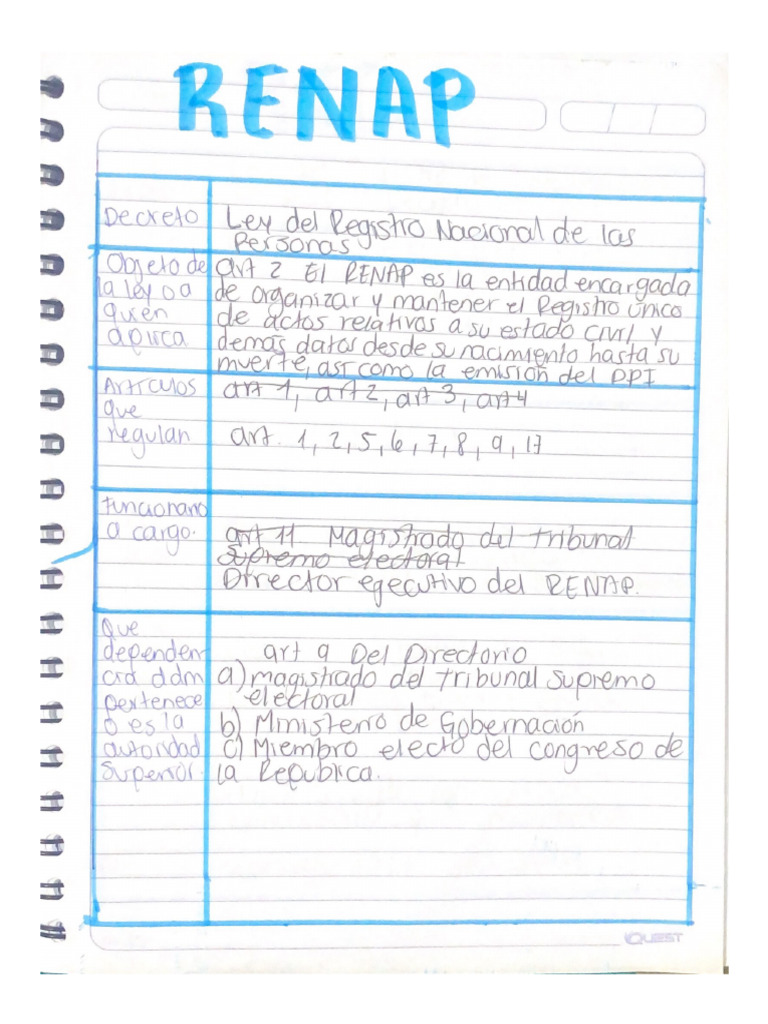 RENAP
Decreto
Ley del Registro Nacional de las
Personas
Objeto de
la ley o a
quien
aplica
art 2 El RENAP es la entidad encargada
de organizar y mantener el Registro único
de actos relativos a su estado civil y
demás datos desde su nacimiento hasta su
muerte, así como la emisión del DPI
Artículos
que
regulan
art 1, art 2, art 3, art 4
art. 1, 2, 5, 6, 7, 8, 9, 17
Funcionario
a cargo.
art 11 Magistrado del tribunal
Supremo electoral
Director egecutivo del RENAP.
Que
dependen
cia adm
pertenece
o es la
autoridad
Superior.
art 9 Del Directorio
a) magistrado del tribunal supremo
electoral
b) Ministerio de Gobernación
c) Miembro electo del congreso de
la República.
QUEST